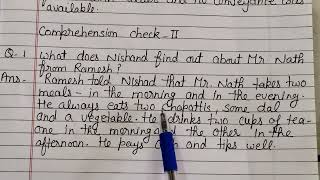 available.
Comprehension check - II
Q-1 What does Nishad find out about Mr. Nath
from Ramesh?
Ans- Ramesh told Nishad that Mr. Nath takes two
meals - in the morning and in the evening.
He always eats two chapattis, some dal
and a vegetable. He drinks two cups of tea-
one in the morning and the other in the
afternoon. He pays and tips well.